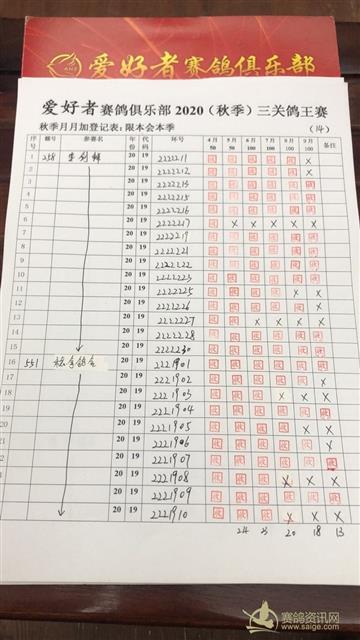 爱好者赛鸽俱乐部
爱好者赛鸽俱乐部2020(秋季)三关鸽王赛
秋季月月加登记表:限本会本季 (14)
序 额号 参赛名 年份 代码 环号 4月50 5月50 6月100 7月100 8月100 9月100 备注
1 238 20 19 2222211 X
2 20 19 2222212 X
3 20 19 2222213
4 20 19 2222215
5 20 19 2222216
6 20 19 2222217 X X X X X
7 20 19 2222219
8 20 19 2222221
9 20 19 2222222
10 20 19 2222223
11 20 19 2222225 X X
12 20 19 2222226 X
13 20 19 2222227 X X X X
14 20 19 2222228
15 20 19 2222230
16 551 20 19 2221901
17 20 19 2221902 X
18 20 19 2221903 X X X
19 20 19 2221904
20 20 19 2221905 X X
21 20 19 2221906 X
20 19 2221907
20 19 2221908 X X X
20 19 2221909
20 19 2221910 X X X
24 23 20 18 13
赛鸽资讯网
www.saige.com